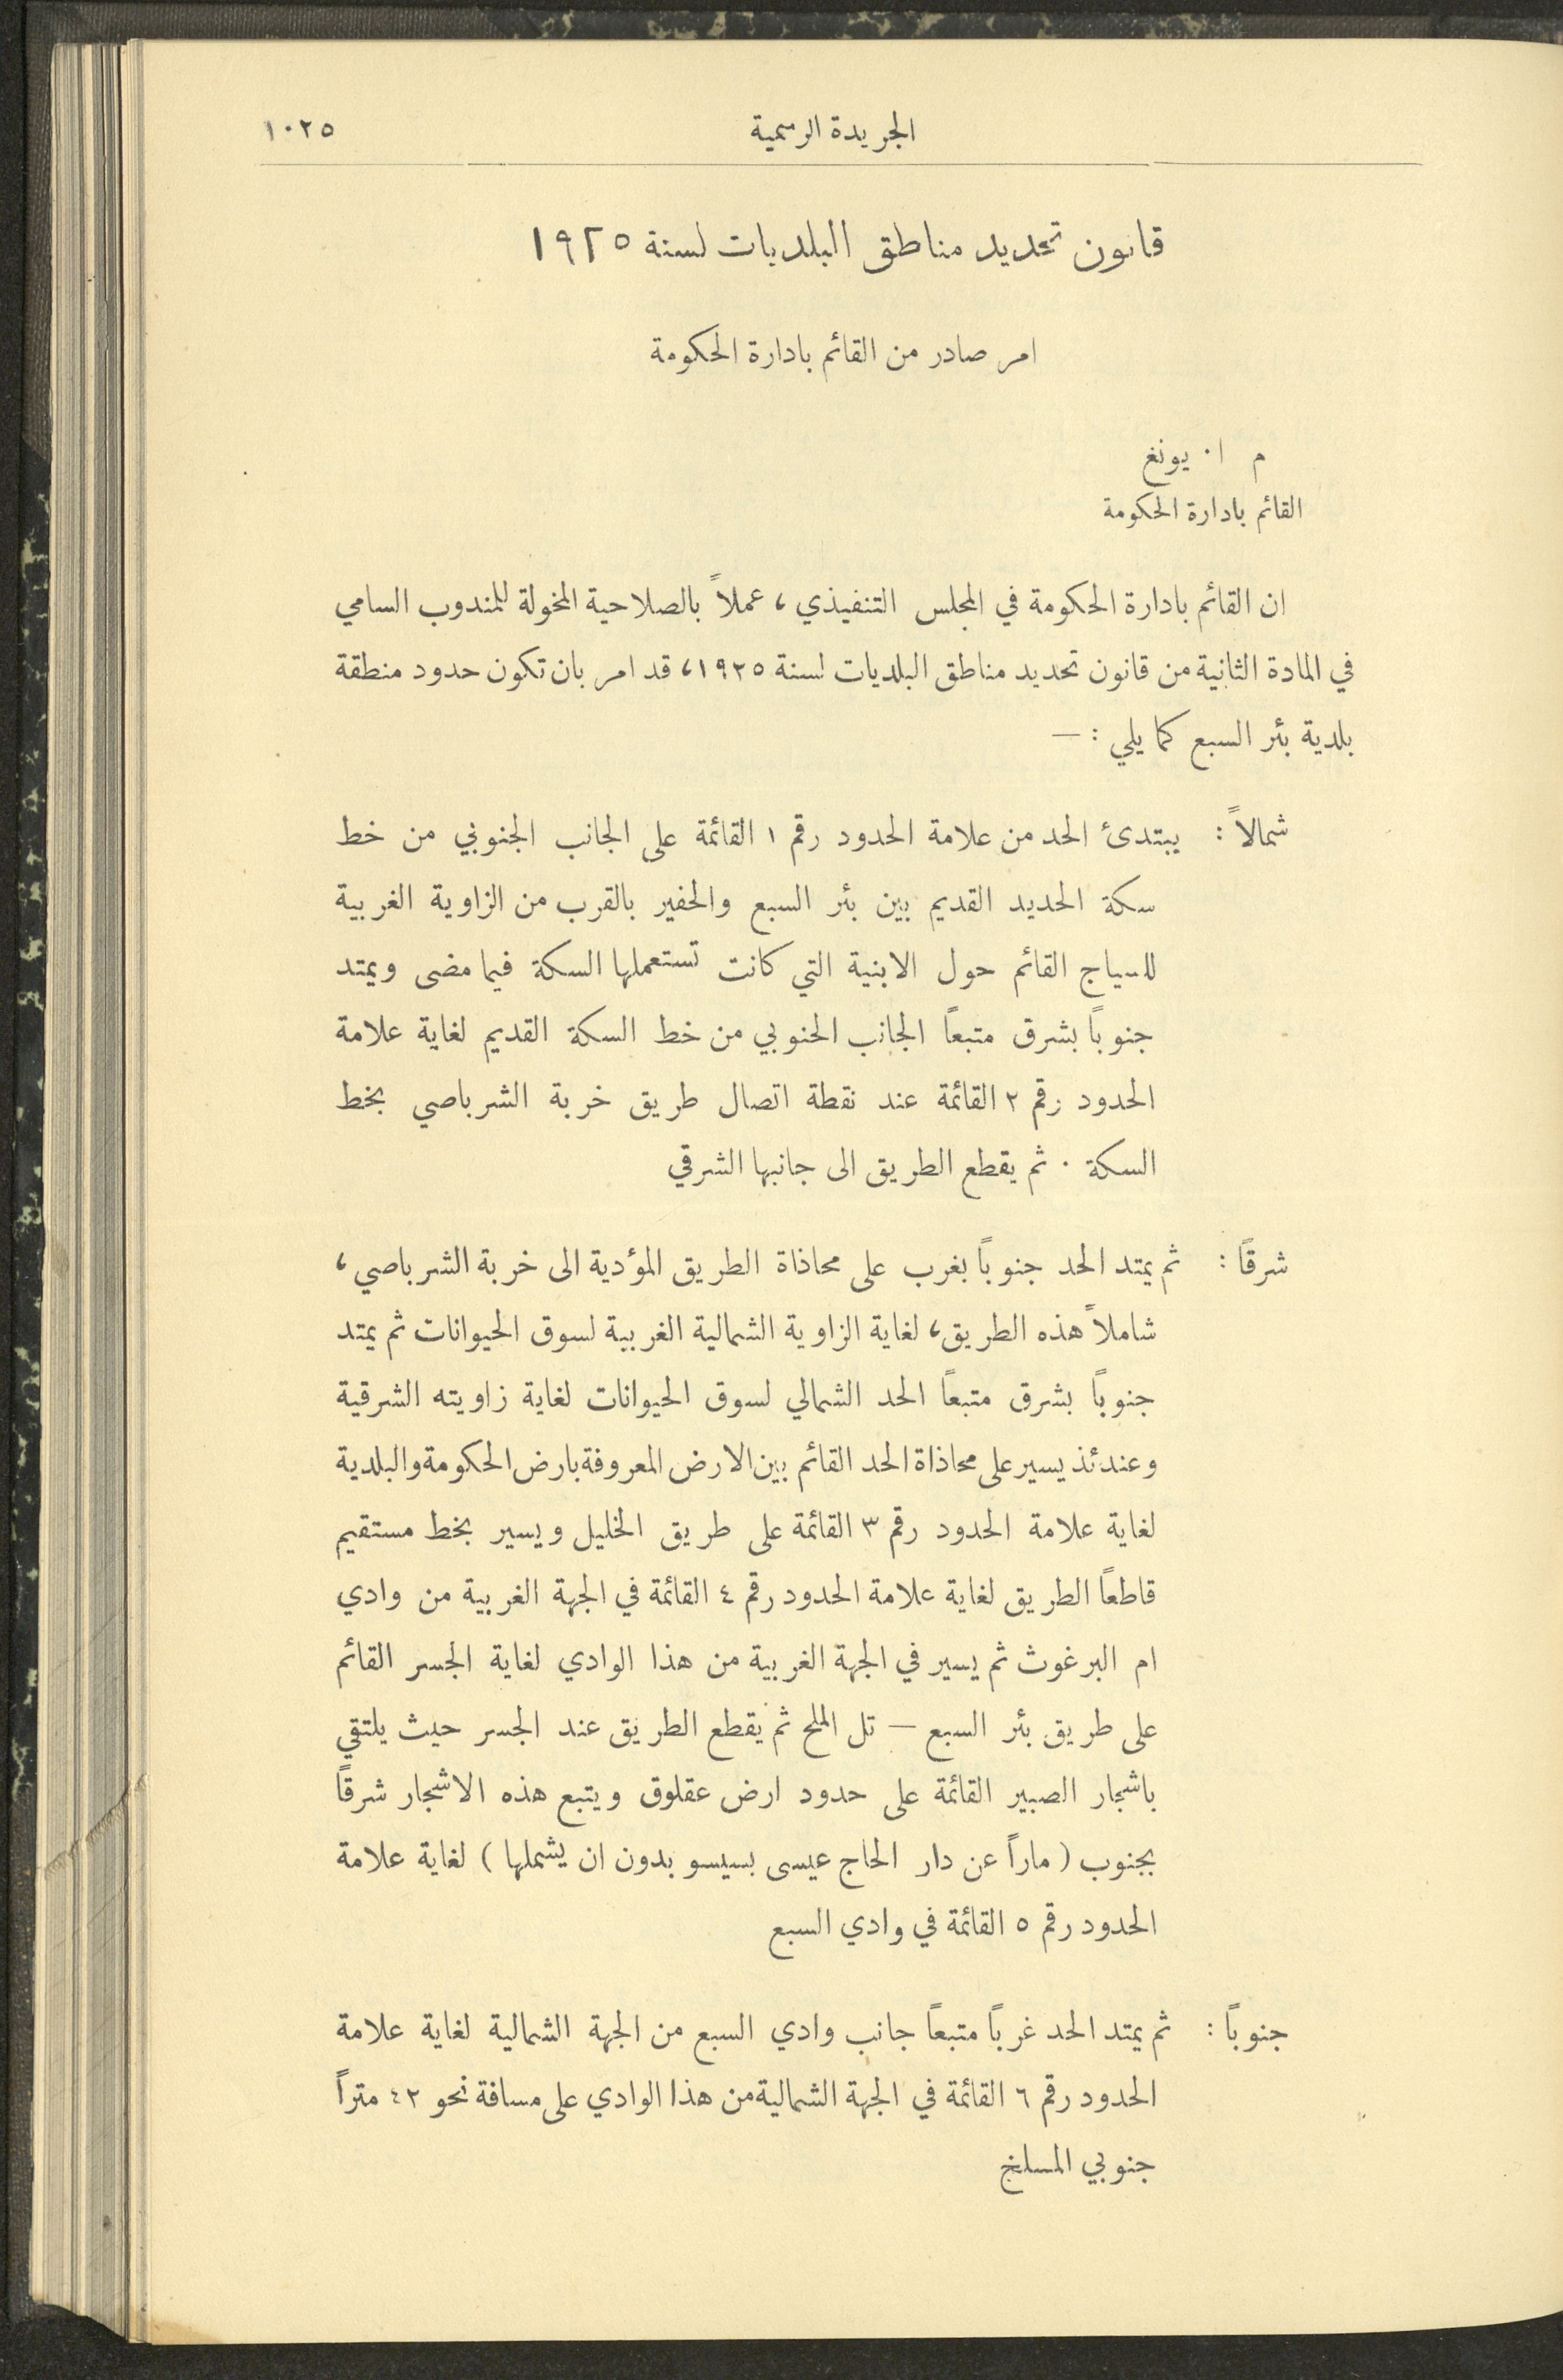 الجريدة الرسمية ١٠٢٥
قانون تحديد مناطق البلديات لسنة ١٩٢٥
امر صادر من القائم بادارة الحكومة
م ا. يونغ
القائم بادارة الحكومة
ان القائم بادارة الحكومة في المجلس التنفيذي، عملاً بالصلاحية المخولة للمندوب السامي
في المادة الثانية من قانون تحديد مناطق البلديات لسنة ١٩٢٥، قد امر بان تكون حدود منطقة
بلدية بئر السبع كما يلي : —
شمالاً : يبتدئ الحد من علامة الحدود رقم ١ القائمة على الجانب الجنوبي من خط
سكة الحديد القديم بين بئر السبع والحفير بالقرب من الزاوية الغربية
للسياج القائم حول الابنية التي كانت تستعملها السكة فيما مضى ويمتد
جنوباً بشرق متبعاً الجانب الجنوبي من خط السكة القديم لغاية علامة
الحدود رقم ٢ القائمة عند نقطة اتصال طريق خربة الشرباصي بخط
السكة . ثم يقطع الطريق الى جانبها الشرقي
شرقاً : ثم يمتد الحد جنوباً بغرب على محاذاة الطريق المؤدية الى خربة الشرباصي،
شاملاً هذه الطريق، لغاية الزاوية الشمالية الغربية لسوق الحيوانات ثم يمتد
جنوباً بشرق متبعاً الحد الشمالي لسوق الحيوانات لغاية زاويته الشرقية
وعندئذ يسير على محاذاة الحد القائم بين الارض المعروفة بارض الحكومة والبلدية
لغاية علامة الحدود رقم ٣ القائمة على طريق الخليل ويسير بخط مستقيم
قاطعاً الطريق لغاية علامة الحدود رقم ٤ القائمة في الجهة الغربية من وادي
ام البرغوث ثم يسير في الجهة الغربية من هذا الوادي لغاية الجسر القائم
على طريق بئر السبع — تل الملح ثم يقطع الطريق عند الجسر حيث يلتقي
باشجار الصبير القائمة على حدود ارض عقلوق ويتبع هذه الاشجار شرقاً
بجنوب ( ماراً عن دار الحاج عيسى بسيسو بدون ان يشملها ) لغاية علامة
الحدود رقم ٥ القائمة في وادي السبع
جنوباً : ثم يمتد الحد غرباً متبعاً جانب وادي السبع من الجهة الشمالية لغاية علامة
الحدود رقم ٦ القائمة في الجهة الشمالية من هذا الوادي على مسافة نحو ٤٢ متراً
جنوبي المسلخ